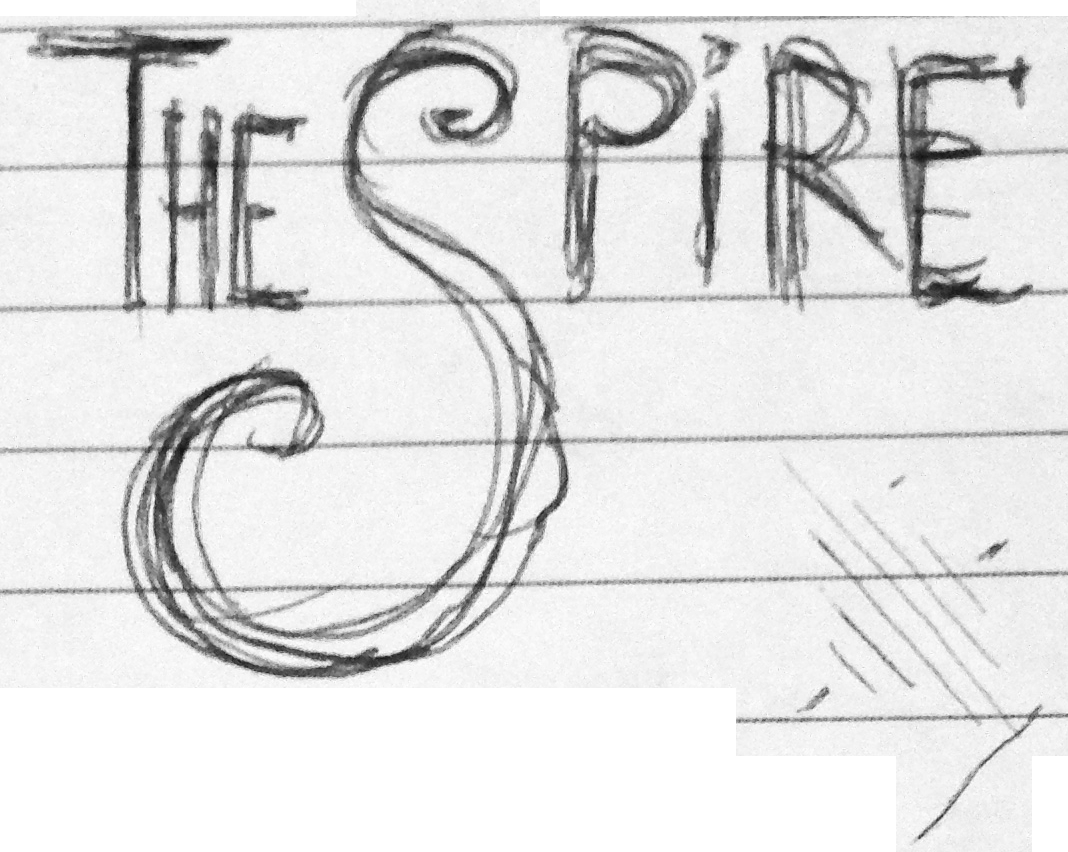 THE SPiRE